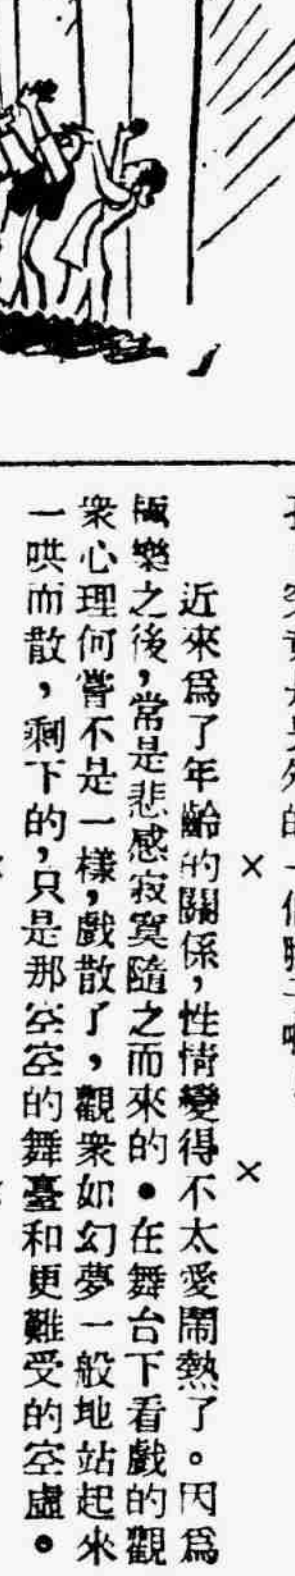 × ×
近來爲了年齡的關係，性情變得不太愛鬧熱了。因爲
極樂之後，常是悲感寂寞隨之而來的●在舞台下看戲的觀
衆心理何嘗不是一樣，戲散了，觀衆如幻夢一般地站起來
一哄而散，剩下的，只是那空空的舞臺和更難受的空虛●